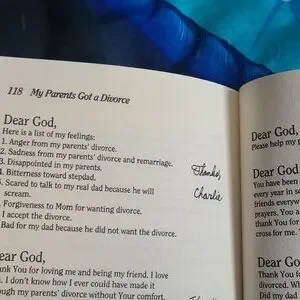 118 My Parents Got a Divorce
Dear God,
Here is a list of my feelings:
1. Anger from my parents' divorce.
2. Sadness from my parents' divorce and remarriage.
3. Disappointed in my parents.
4. Bitterness toward stepdad.
5. Scared to talk to my real dad because he will
scream.
. Forgiveness to Mom for wanting divorce.
I accept the divorce.
Bad for my dad because he did not want the divorce.
Thanks,
Charlie
ear God,
ank You for loving me and being my friend. I love
. I don't know how I ever could have made it
ugh my parents' divorce without Your comfort,
Dear God,
Please help my p
Dear God,
You have been
every year in s
friends everyw
prayers. You a
thank You for
cross for me.
Dear God,
Thank You for
divorced. Wh